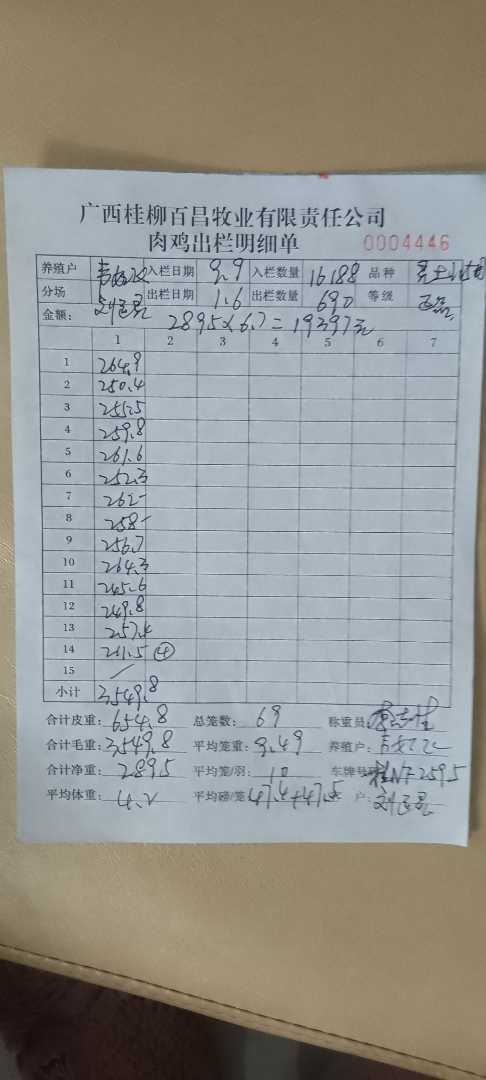 广西桂柳百昌牧业有限责任公司
肉鸡出栏明细单 0004446
养殖户 入栏日期 9.9 入栏数量 16188 品种
分场 出栏日期 1.6 出栏数量 690 等级 正品
金额: 2895×6.7=19397元
1 2 3 4 5 6 7
1 264.9
2 250.4
3 255.5
4 259.8
5 261.6
6 252.3
7 262-
8 258-
9 256.7
10 264.3
11 245.6
12 249.8
13 257.4
14 211.5 ④
15 /
小计 3549.8
合计皮重: 654.8 总笼数: 69 称重员:
合计毛重: 3549.8 平均笼重: 9.49 养殖户:
合计净重: 2895 平均笼/羽: 10 车牌号 桂NF2595
平均体重: 4.2 平均磅/笼 47.4+47.5 客户: